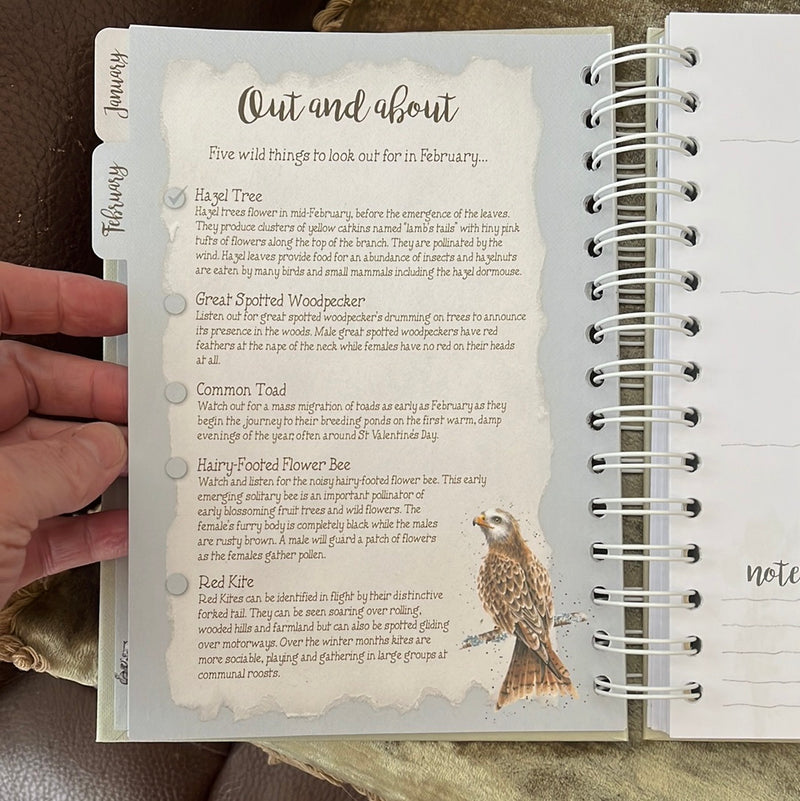 January
February
Out and about
Five wild things to look out for in February...
Hazel Tree
Hazel trees flower in mid-February, before the emergence of the leaves.
They produce clusters of yellow catkins named "lamb's tails" with tiny pink
tufts of flowers along the top of the branch. They are pollinated by the
wind. Hazel leaves provide food for an abundance of insects and hazelnuts
are eaten by many birds and small mammals including the hazel dormouse.
Great Spotted Woodpecker
Listen out for great spotted woodpecker's drumming on trees to announce
its presence in the woods. Male great spotted woodpeckers have red
feathers at the nape of the neck while females have no red on their heads
at all.
Common Toad
Watch out for a mass migration of toads as early as February as they
begin the journey to their breeding ponds on the first warm, damp
evenings of the year, often around St Valentine's Day.
Hairy-Footed Flower Bee
Watch and listen for the noisy hairy-footed flower bee. This early
emerging solitary bee is an important pollinator of
early blossoming fruit trees and wild flowers. The
female's furry body is completely black while the males
are rusty brown. A male will guard a patch of flowers
as the females gather pollen.
Red Kite
Red Kites can be identified in flight by their distinctive
forked tail. They can be seen soaring over rolling,
wooded hills and farmland but can also be spotted gliding
over motorways. Over the winter months kites are
more sociable, playing and gathering in large groups at
communal roosts.
note